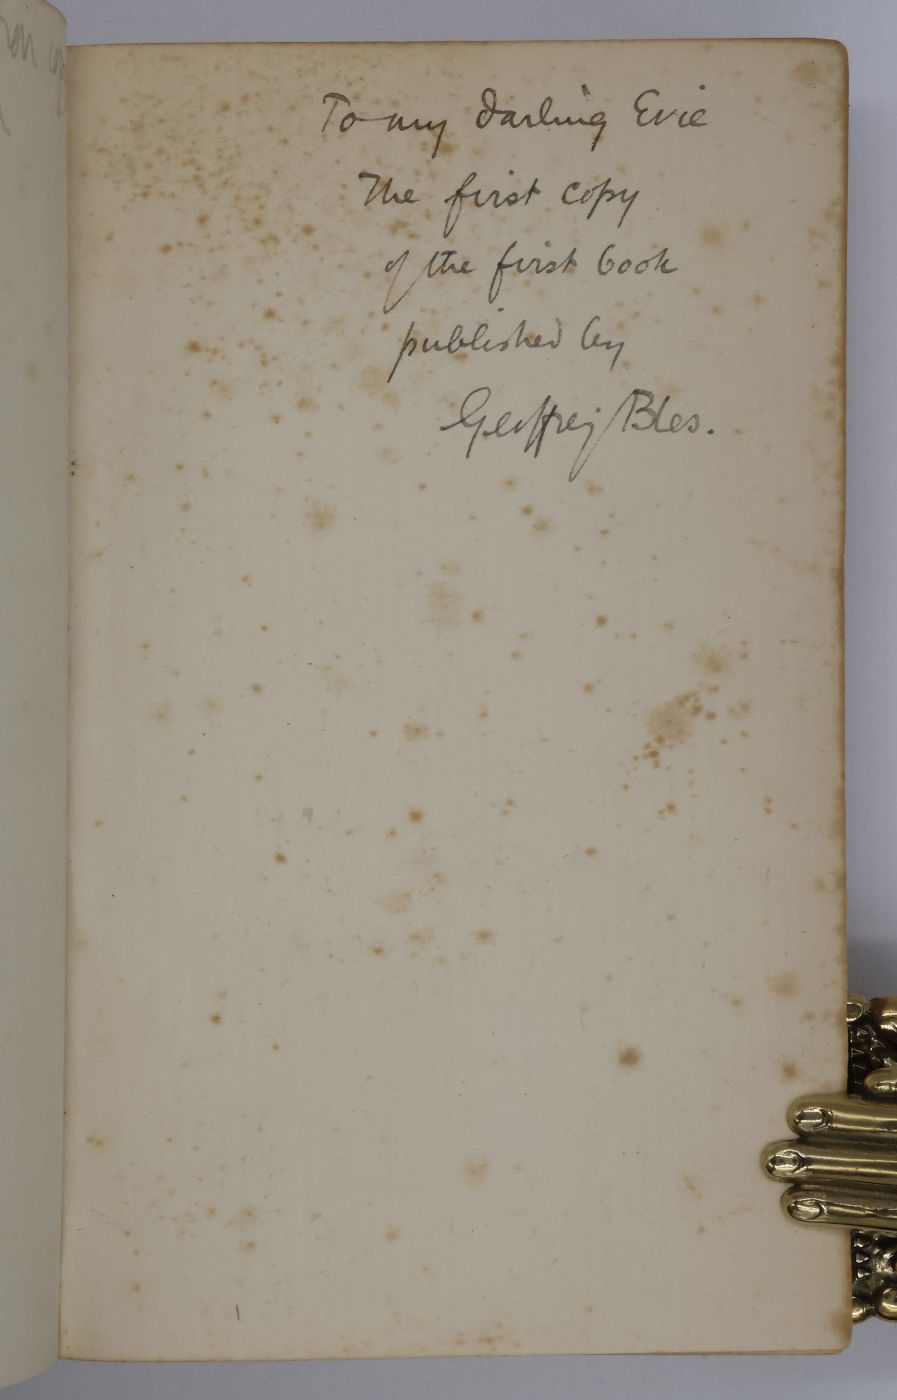 To my darling Evie
The first copy
of the first book
published by
Geoffrey Bles.